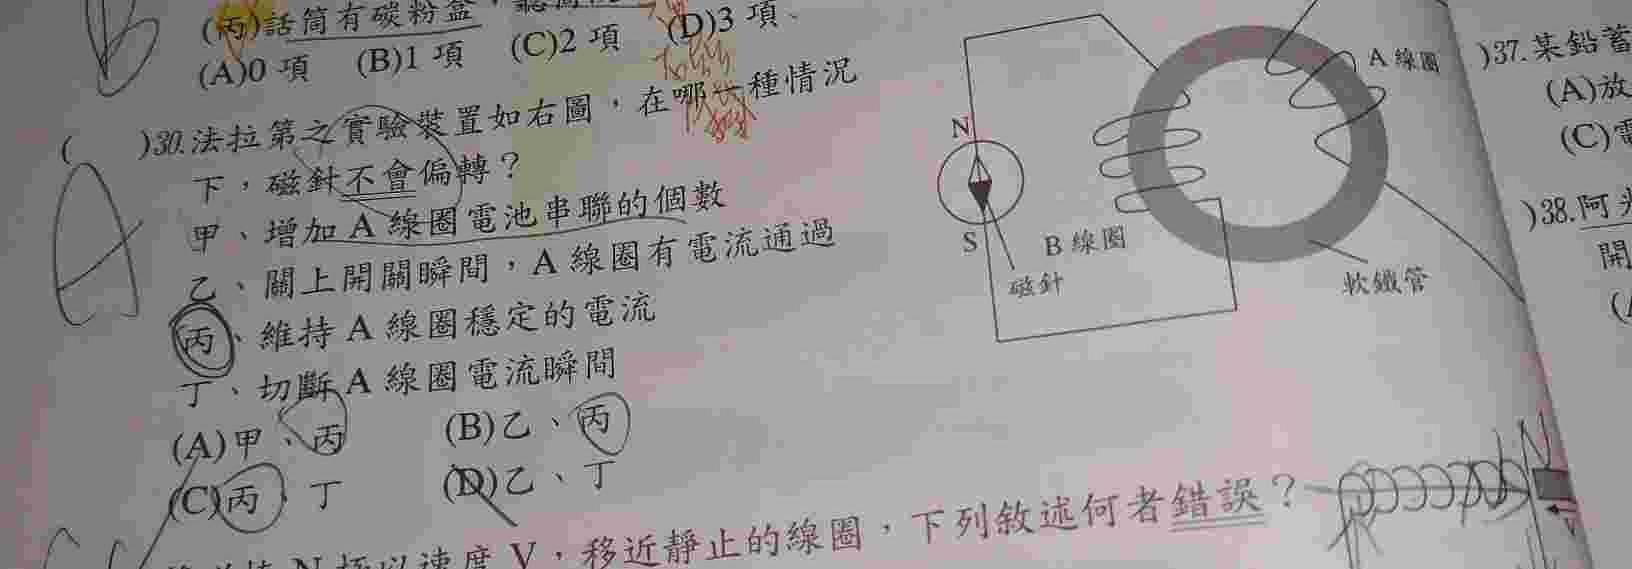 (丙)話筒有碳粉盒，
(A)0 項 (B)1 項 (C)2 項 (D)3 項
( )30.法拉第之實驗裝置如右圖，在哪一種情況
下，磁針不會偏轉？
甲、增加 A 線圈電池串聯的個數
乙、關上開關瞬間，A 線圈有電流通過
丙、維持 A 線圈穩定的電流
丁、切斷 A 線圈電流瞬間
(A)甲、丙 (B)乙、丙
(C)丙、丁 (D)乙、丁
N 極以速度 V，移近靜止的線圈，下列敘述何者錯誤？
B
A
N
S
磁針
B 線圈
A 線圈
軟鐵管
N
)37.某鉛蓄
(A)放
(C)電
)38.阿
開